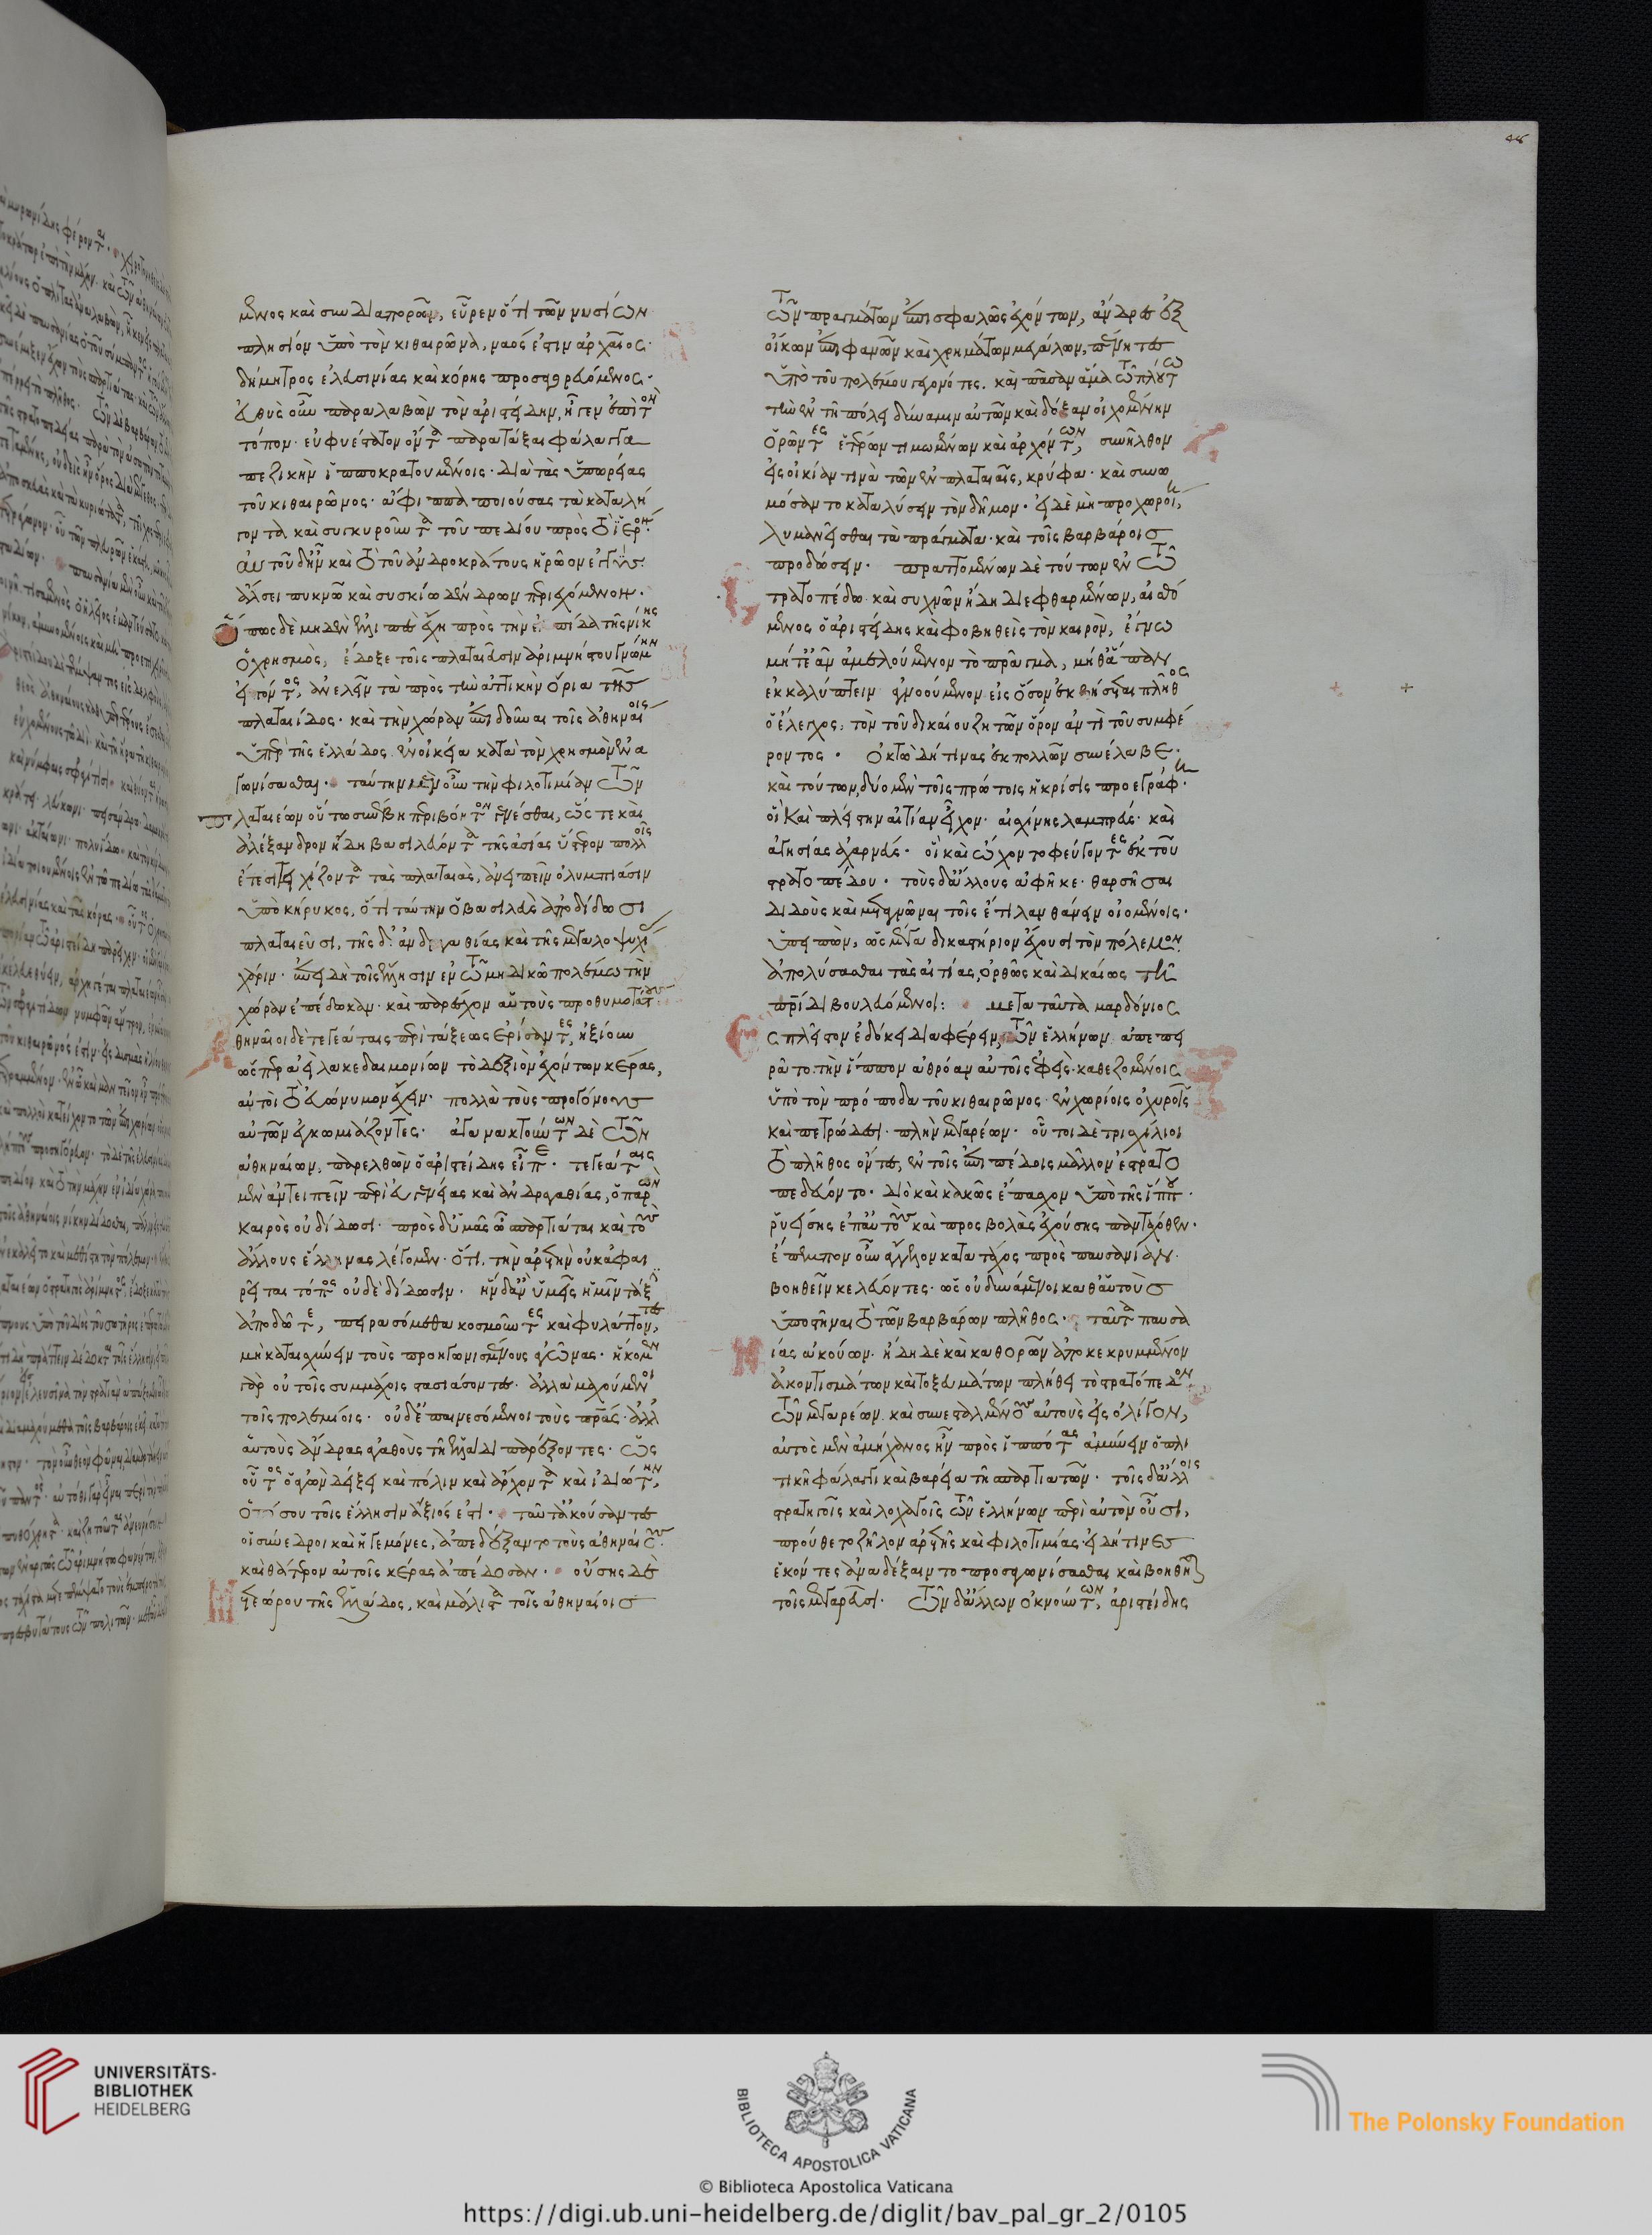 μενος καὶ συνδιαπορῶν, εὗρεν ὅτι τῶν νυσίων
πλησίον ὑπὸ τὸν κιθαιρῶνα, ναός ἐστιν ἀρχαῖος·
δήμητρος ἐλευσινίας καὶ κόρης προσαγορευόμενος·
εὐθὺς οὖν παραλαβὼν τὸν ἀριστείδην, ἦγεν ἐπὶ τὸν
τόπον· εὐφυέστατον ὄντα παρατάξαι φάλαγγα
πεζικὴν ἱπποκρατουμένοις· διὰ τὰς ὑπωρείας
τοῦ κιθαιρῶνος· ἄφιππα ποιούσας τὰ καταλή
γοντα καὶ συγκυροῦντα τοῦ πεδίου πρὸς τὸ ἱερόν·
αὐτοῦ δ' ἦν καὶ τὸ τοῦ ἀνδροκράτους ἡρῶον ἐγγύς·
ἄλσει πυκνῶν καὶ συσκίων δένδρων περιεχόμενον·
ὅπως δὲ μηδὲν ἐλλιπὲς ἔχη πρὸς τὴν ἐλπίδα τῆς νίκης
ὁ χρησμὸς, ἔδοξε τοῖς πλαταιεῦσιν ἀριμνήστου γνώμην
εἰπόντος, ἀνελεῖν τὰ πρὸς τὴν ἀττικὴν ὅρια τῆς
πλαταιίδος· καὶ τὴν χώραν ἐπιδοῦναι τοῖς ἀθηναίοις
ὑπὲρ τῆς ἑλλάδος. ἐν οἰκεία κατὰ τὸν χρησμὸν ἐνα
γωνίσασθαι· ταύτην μὲν οὖν τὴν φιλοτιμίαν τῶν
πλαταιέων οὕτω συνέβη περιβόητον γενέσθαι, ὥστε καὶ
ἀλέξανδρον ἤδη βασιλεύοντα τῆς ἀσίας ὕστερον πολλοῖς
ἔτεσι τειχίζοντα τὰς πλαταιὰς, ἀνειπεῖν ὀλυμπιάσιν
ὑπὸ κήρυκος, ὅτι ταύτην ὁ βασιλεὺς ἀποδίδωσι
πλαταιεῦσι, τῆς ἀνδραγαθίας καὶ τῆς μεγαλοψυχίας
χάριν· ἐπειδὴ τοῖς ἕλλησιν ἐν τῶ μηδικῶ πολέμω τὴν
χώραν ἐπέδωκαν· καὶ παρέσχον αὑτοὺς προθυμοτάτους·
Ἀθηναίοι δὲ τεγεάταις περὶ τάξεως ἐρίσαντες, ἠξίουν
ὥσπερ ἀεὶ λακεδαιμονίων τὸ δεξιὸν ἐχόντων κέρας,
αὐτοὶ τὸ εὐώνυμον ἔχειν· πολλὰ τοὺς προγόνους
αὐτῶν ἐγκωμιάζοντες· ἀγανακτούντων δὲ τῶν
ἀθηναίων, παρελθὼν ὁ ἀριστείδης εἶπε· τεγεάταις
μὲν ἀντειπεῖν περὶ εὐγενείας καὶ ἀνδραγαθίας, ὁ παρὼν
καιρὸς οὐ δίδωσι· πρὸς δ' ὑμᾶς ὦ σπαρτιάται καὶ τοὺς
ἄλλους ἕλληνας λέγομεν· ὅτι τὴν ἀρετὴν οὐκ ἀφαι
ρεῖται τόπος οὐδὲ δίδωσιν· ἣν δ' ἂν ὑμεῖς ἡμῖν τάξιν
ἀποδῶτε, πειρασόμεθα κοσμοῦντες καὶ φυλάττοντες,
μὴ καταισχύνειν τοὺς προηγωνισμένους ἀγῶνας· ἥκομεν
γὰρ οὐ τοῖς συμμάχοις στασιάσοντες· ἀλλὰ μαχούμενοι
τοῖς πολεμίοις· οὐδ' ἐπαινεσόμενοι τοὺς πατέρας· ἀλλ'
αὑτοὺς ἄνδρας ἀγαθοὺς τῆ ἑλλάδι παρέξοντες· ὡς
οὗτος ὁ ἀγὼν δείξει καὶ πόλιν καὶ ἄρχοντα καὶ ἰδιώτην,
ὁπόσου τοῖς ἕλλησιν ἄξιός ἐστι· ταῦτ' ἀκούσαντες
οἱ σύνεδροι καὶ ἡγεμόνες, ἀπεδέξαντο τοὺς ἀθηναίους·
καὶ θάτερον αὐτοῖς κέρας ἀπέδοσαν· οὔσης δὲ
μετεώρου τῆς ἑλλάδος, καὶ μάλιστα τοῖς ἀθηναίοις
τῶν πραγμάτων ἐπισφαλῶς ἐχόντων, ἄνδρες ἐξ
οἴκων ἐπιφανῶν καὶ χρημάτων μεγάλων, πένητες
ὑπὸ τοῦ πολέμου γεγονότες. καὶ πᾶσαν ἅμα τῶ πλούτω
τὴν ἐν τῆ πόλει δύναμιν αὐτῶν καὶ δόξαν οἰχομένην
ὁρῶντες ἑτέρων τιμωμένων καὶ ἀρχόντων, συνῆλθον
εἰς οἰκίαν τινὰ τῶν ἐν πλαταιαῖς, κρύφα· καὶ συνω
μόσαντο καταλύσειν τὸν δῆμον· εἰ δὲ μὴ προχωροίη,
λυμανεῖσθαι τὰ πράγματα· καὶ τοῖς βαρβάροις
προδώσειν· πραττομένων δὲ τούτων ἐν τῶ
στρατοπέδω καὶ συχνῶν ἤδη διεφθαρμένων, αἰσθό
μενος ὁ ἀριστείδης καὶ φοβηθεὶς τὸν καιρὸν, ἔγνω
μήτ' ἐᾶν ἀμελούμενον τὸ πρᾶγμα, μήθ' ἅπαν
ἐκκαλύπτειν ἀγνοούμενον εἰς ὅσον ἐκβήσεται πλῆθος
ὁ ἔλεγχος, τὸν τοῦ δικαίου ζητῶν ὅρον ἀντὶ τοῦ συμφέ
ροντος· ὀκτὼ δή τινας ἐκ πολλῶν συνέλαβε·
καὶ τούτων, δύο μὲν τοῖς πρώτοις ἡ κρίσις προεγράφη·
οἳ καὶ πλείστην αἰτίαν εἶχον· αἰσχίνης λαμπρεύς· καὶ
ἀγησίας ἀχαρνεύς· οἳ καὶ ὤχοντο φεύγοντες ἐκ τοῦ
στρατοπέδου· τοὺς δ' ἄλλους ἀφῆκε· θαρσῆσαι
διδοὺς καὶ μεταγνῶναι τοῖς ἔτι λανθάνειν οἰομένοις·
ὑπειπὼν, ὡς μέγα δικαστήριον ἔχουσι τὸν πόλεμον
ἀπολύσασθαι τὰς αἰτίας, ὀρθῶς καὶ δικαίως τῆ
πατρίδι βουλευόμενοι: μετὰ ταῦτα μαρδόνιος
ὧ πλεῖστον ἐδόκει διαφέρειν, τῶν ἑλλήνων ἀπεπει
ρᾶτο· τὴν ἵππον ἀθρόαν αὐτοῖς ἐφεὶς· καθεζομένοις
ὑπὸ τὸν πρόποδα τοῦ κιθαιρῶνος· ἐν χωρίοις ὀχυροῖς
καὶ πετρώδεσι· πλὴν μεγαρέων· οὗτοι δὲ τρισχίλιοι
τὸ πλῆθος ὄντες, ἐν τοῖς ἐπιπέδοις μᾶλλον ἐστρατο
πεδεύοντο· διὸ καὶ κακῶς ἔπασχον ὑπὸ τῆς ἵππου·
ῥυείσης ἐπ' αὐτοὺς καὶ προσβολὰς ἐχούσης πανταχόθεν·
ἔπεμπον οὖν ἄγγελον κατὰ τάχος πρὸς παυσανίαν·
βοηθεῖν κελεύοντες· ὡς οὐ δυνάμενοι καθ' αὑτοὺς
ὑποστῆναι τὸ τῶν βαρβάρων πλῆθος· ταῦτα παυσα
νίας ἀκούων· ἤδη δὲ καὶ καθορῶν ἀποκεκρυμμένον
ἀκοντισμάτων καὶ τοξευμάτων πλήθει τὸ στρατόπεδον
τῶν μεγαρέων καὶ συνεσταλμένους αὐτοὺς εἰς ὀλίγον,
αὐτὸς μὲν ἀμήχανος ἦν πρὸς ἱππότας ἀμύνειν ὁπλι
τικῆ φάλαγγι καὶ βαρεία τῆ σπαρτιατῶν· τοῖς δ' ἄλλοις
στρατηγοῖς καὶ λοχαγοῖς τῶν ἑλλήνων περὶ αὐτὸν οὖσι,
προύθετο ζῆλον ἀρετῆς καὶ φιλοτιμίας· εἰ δή τινες
ἑκόντες ἀναδέξαιντο προσαγωνίσασθαι καὶ βοηθῆσαι
τοῖς μεγαρεῦσι· τῶν δ' ἄλλων ὀκνούντων, ἀριστείδης
UNIVERSITÄTS-
BIBLIOTHEK
HEIDELBERG
BIBLIOTECA APOSTOLICA VATICANA
The Polonsky Foundation
© Biblioteca Apostolica Vaticana
https://digi.ub.uni-heidelberg.de/diglit/bav_pal_gr_2/0105